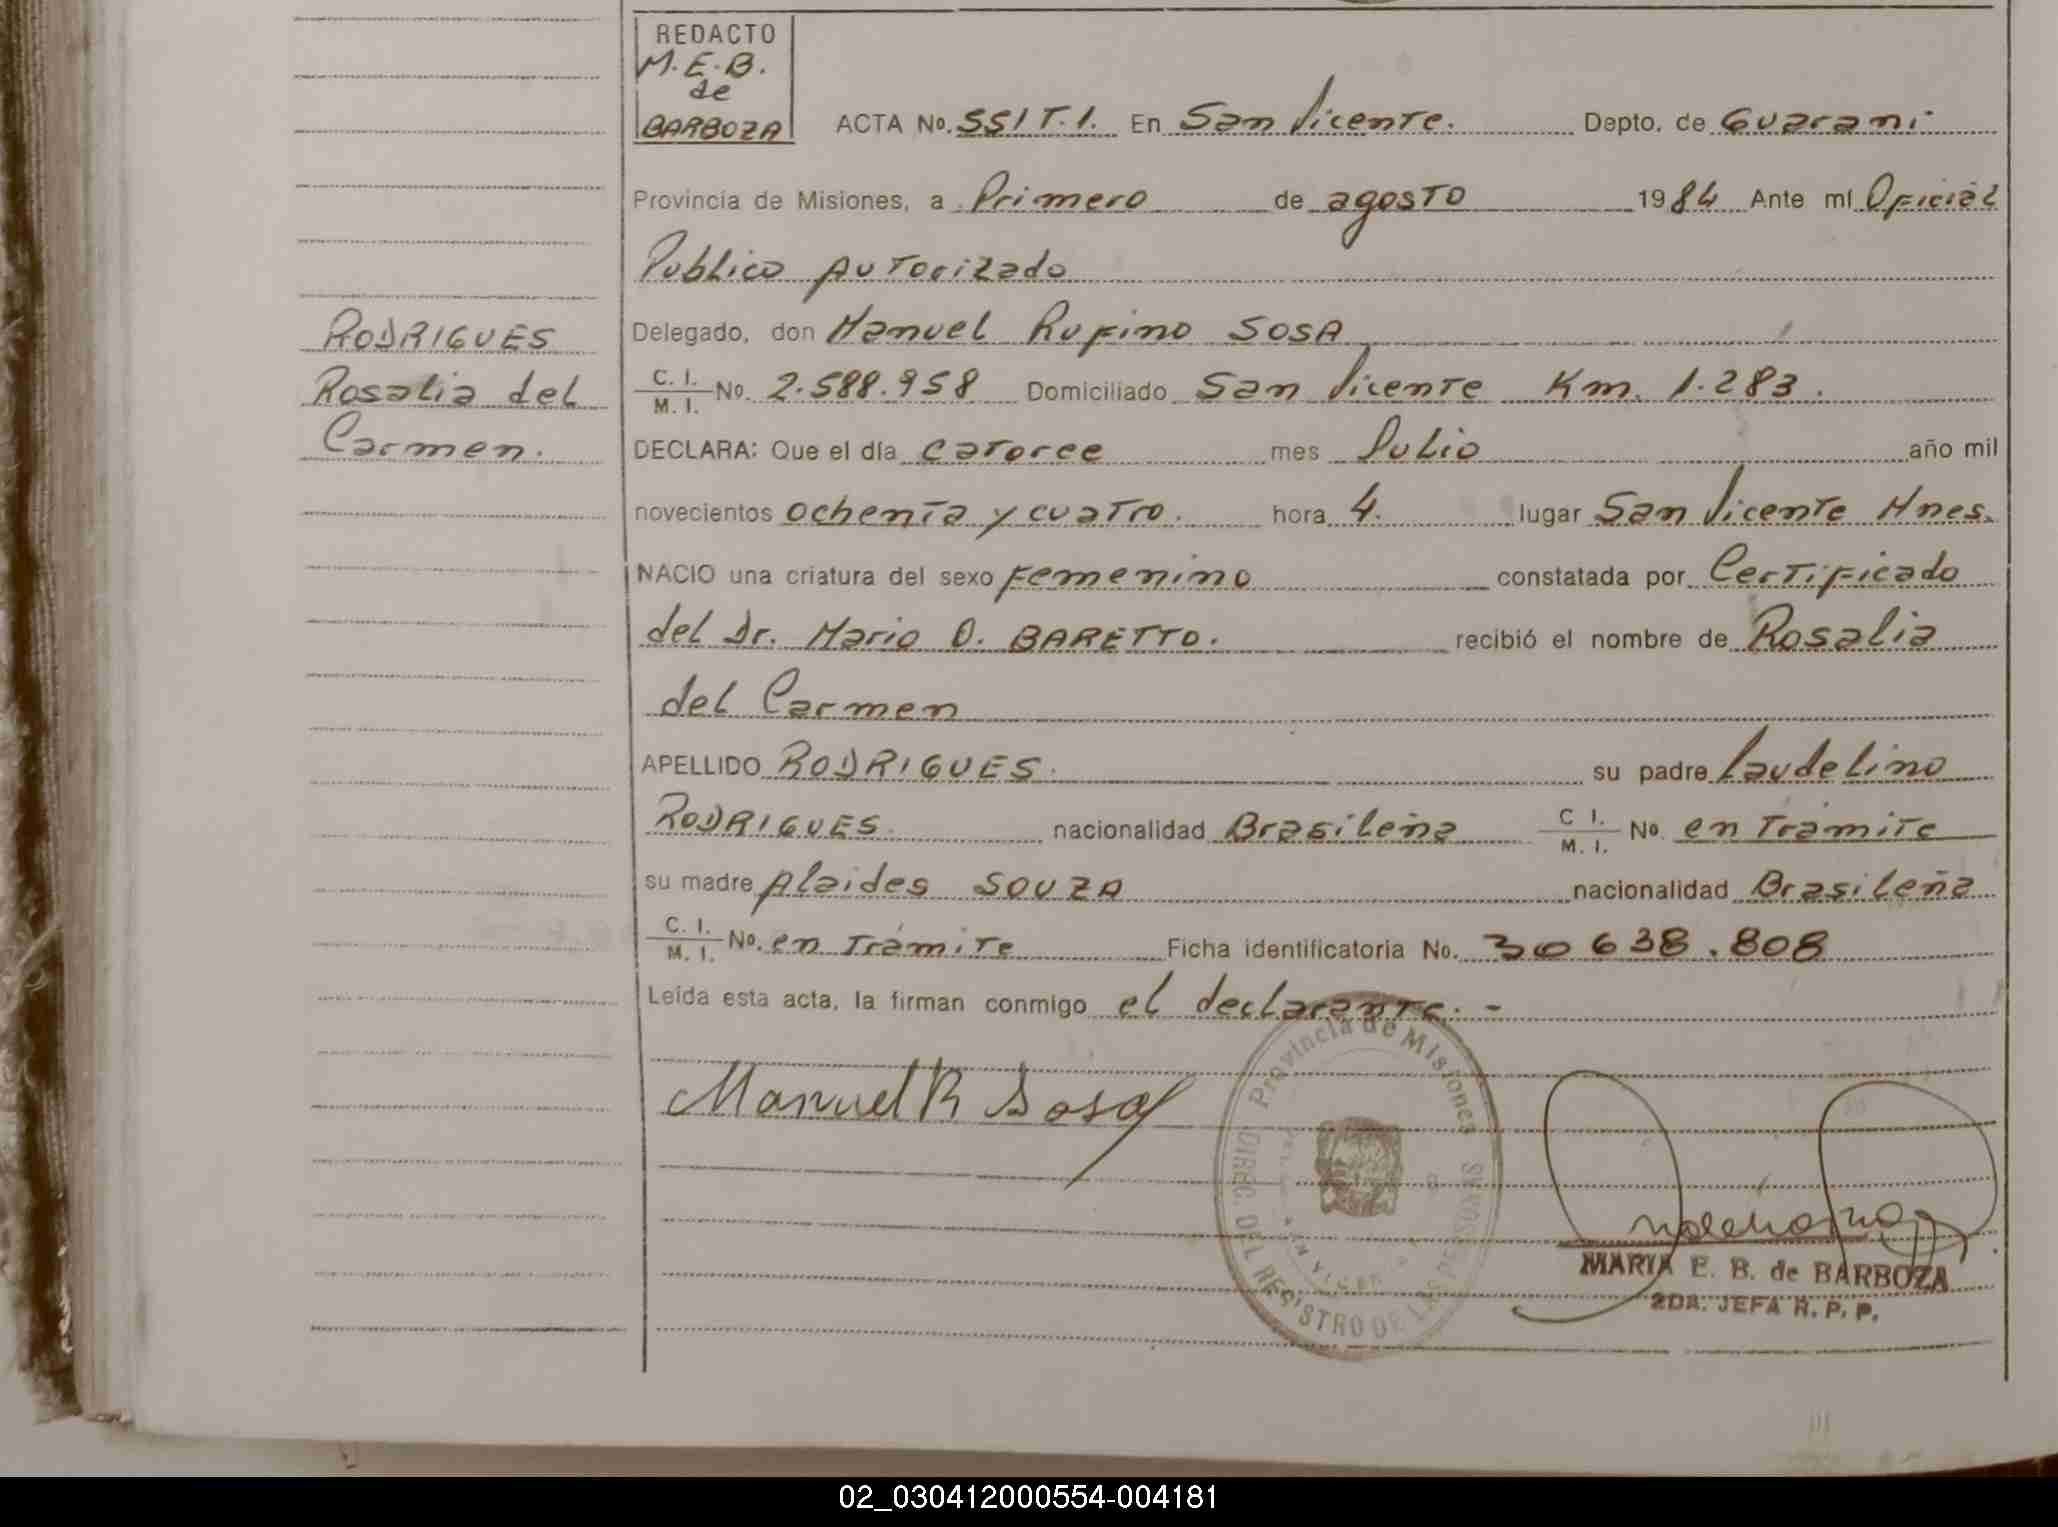 REDACTO
M.E.B.
de
BARBOZA
ACTA No. 551 T.1. En San Vicente. Depto. de Guarani
Provincia de Misiones, a Primero de agosto 1984 Ante mi Oficial
Publico Autorizado
Delegado, don Manuel Rufino SOSA
C. I. / M. I. No. 2.588.958 Domiciliado San Vicente Km. 1.283.
DECLARA: Que el día catorce mes Julio año mil
novecientos ochenta y cuatro. hora 4. lugar San Vicente Mnes.
NACIO una criatura del sexo Femenino constatada por Certificado
del Dr. Mario O. BARETTO. recibió el nombre de Rosalia
del Carmen
APELLIDO RODRIGUES. su padre Laudelino
RODRIGUES. nacionalidad Brasileña C I. / M. I. No. en Tramite
su madre Alaides SOUZA nacionalidad Brasileña
C. I. / M. I. No. en Trámite Ficha identificatoria No. 30638.808
Leida esta acta, la firman conmigo el declarante. -
RODRIGUES
Rosalia del
Carmen.
Manuel R Sosa
Provincia de Misiones
DIREC. DEL REGISTRO DE LAS PERSONAS
MARIA E. B. de BARBOZA
2DA. JEFA R. P. P.
02_030412000554-004181